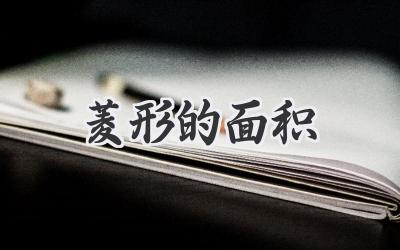 菱形的面积